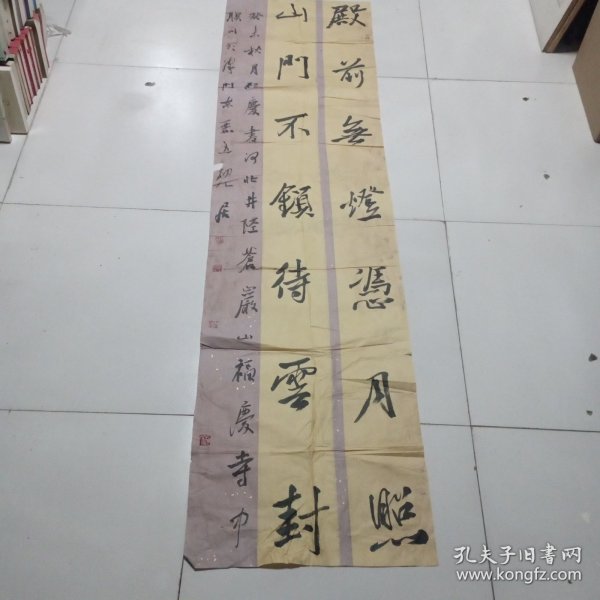 殿前無燈憑月照
山門不鎖待雲封
癸未秋月 慶書河北井陘蒼巖山福慶寺中
聯 於津門
居
孔夫子旧书网
www.kongfz.com